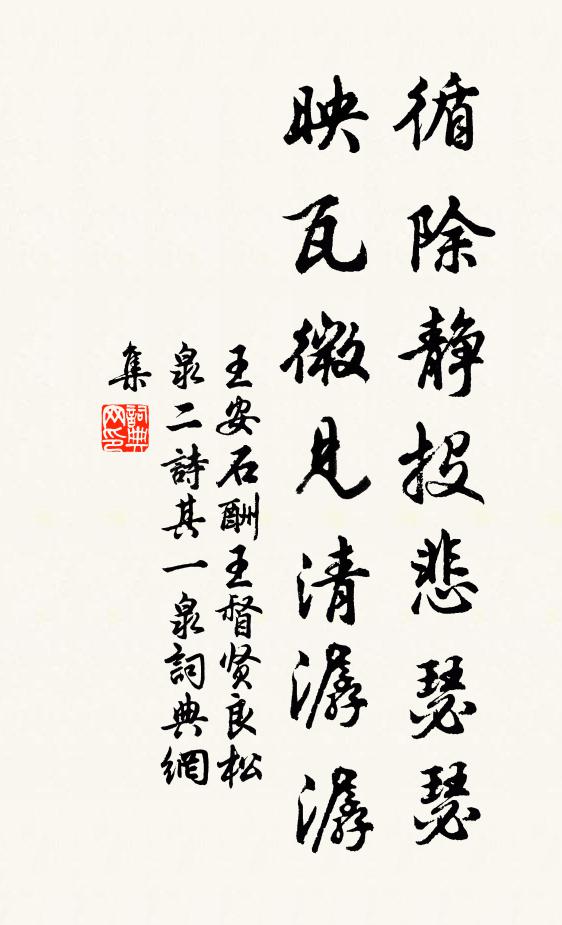 循除静投悲瑟瑟
映瓦微見清潺潺
王安石酬王督贤良松
泉二詩其一泉詞典網
集
詞典
网印